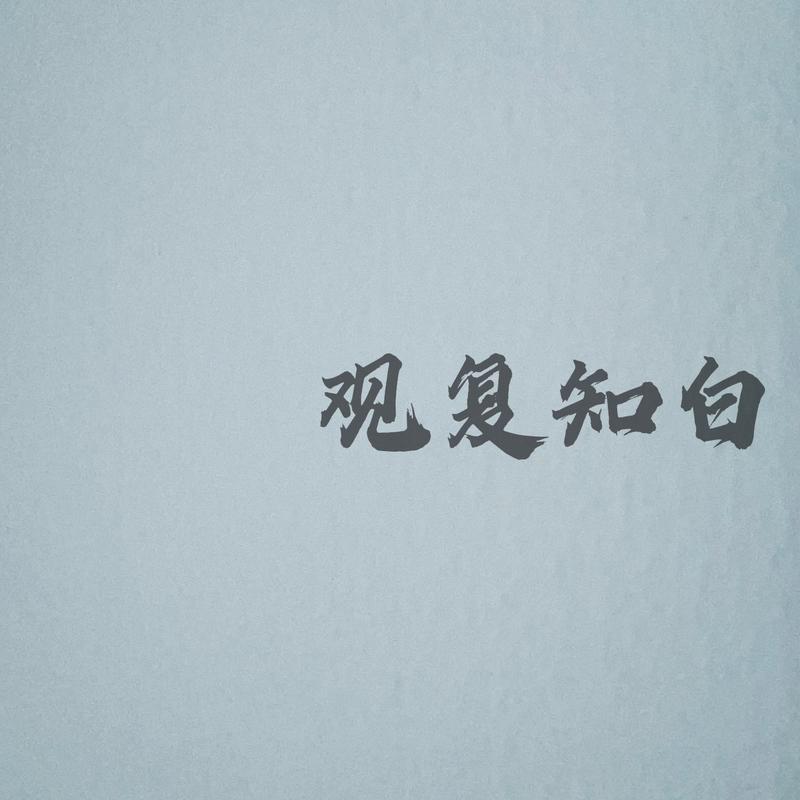 观复知白